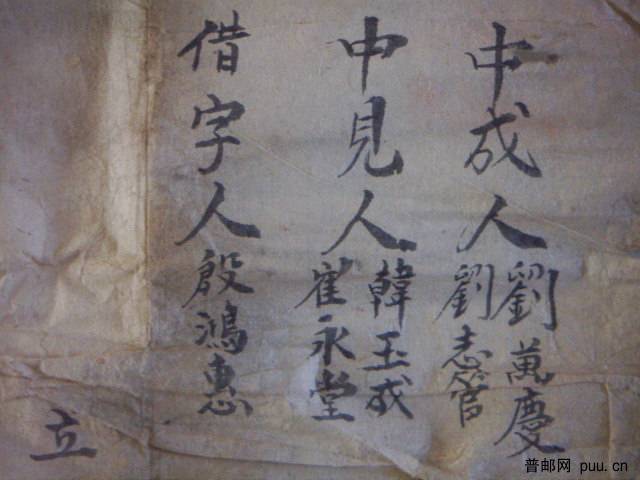 中成人劉萬慶
劉志管
中見人韓玉成
崔永堂
借字人殷鴻惠
立
普邮网 puu.cn